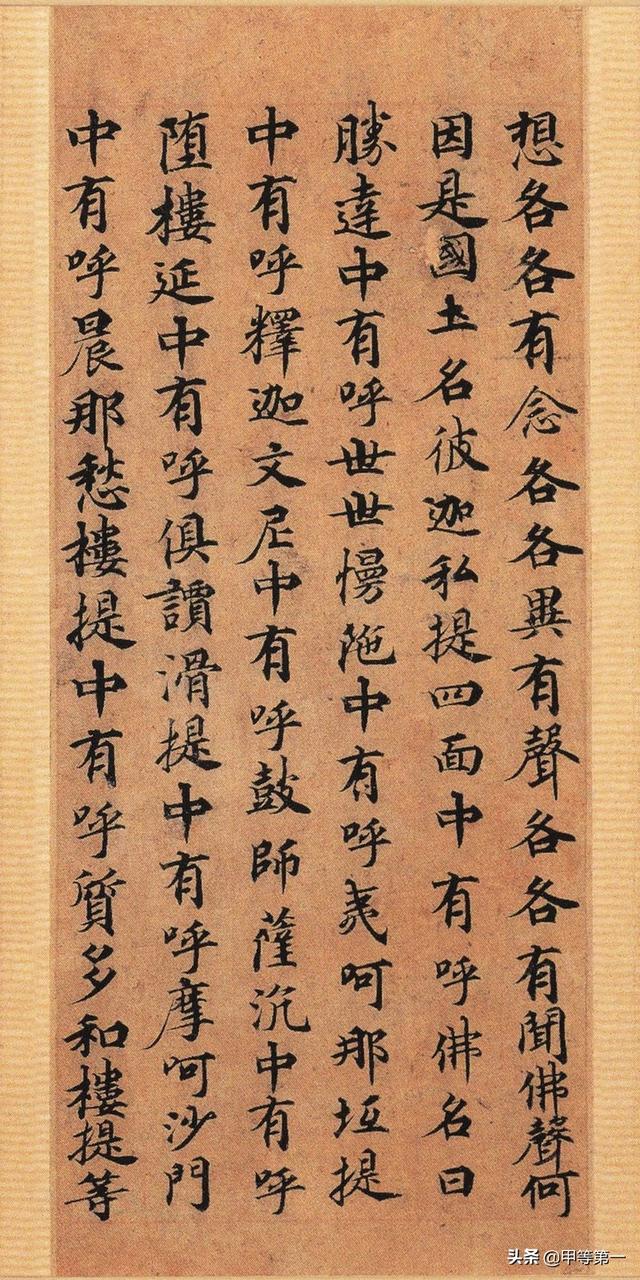 想各各有念各各異有聲各各有聞佛聲何
因是國土名彼迦私提四面中有呼佛名曰
勝達中有呼世世慢陁中有呼夷呵那坘提
中有呼釋迦文尼中有呼鼓師薩沉中有呼
墮樓延中有呼俱譚滑提中有呼摩呵沙門
中有呼晨那愁樓提中有呼質多和樓提等
头条 @甲等第一